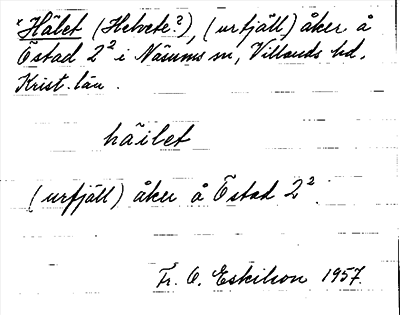 *Hälet (Helvete?), (urfjäll) åker å
Östad 2² i Näsums sn, Villands hd,
Krist. län.
häilet
(urfjäll) åker å Östad 2².
Fr. O. Eskilson 1957.